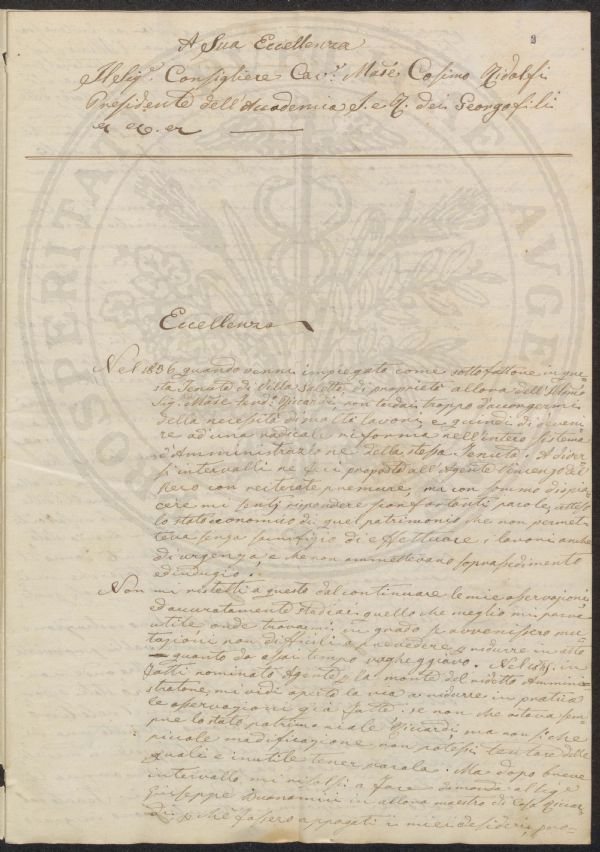 A Sua Eccellenza
Il Sig.r Consigliere Cav.r M.se Cosimo Ridolfi
Presidente dell'Accademia I. e R. dei Georgofili
PROSPERITATI AUGE
Eccellenza
Nel 1836 quando venni impiegato come sottofattore in que=
sta Tenuta di Villa Saletta, di proprietà allora dell'Illmo
Sig.r M.se Riccardi, non tardai troppo d'accorgermi
della necessità di molti lavori, e quindi di deveni=
re ad una radicale riforma nell'intero sistema
d'Amministrazione della stessa Tenuta. A diver=
si intervalli ne feci proposta all'Agente Vincenzo
con reiterate premure, ma con sommo dispia=
cere mi sentj rispondere sconfortanti parole, atteso
lo stato economico di quel patrimonio che non permet=
teva senza sacrifizio di effettuare i lavori anche
di urgenza, e che non ammettevano soprassedimento
ed indugio.
Non mi ristetti a questo dal continuare le mie osservazioni,
ed accuratamente studiai quello che meglio mi parve
utile onde trovarmi in grado se avvenissero mu=
tazioni non difficili a prevedere, ridurre in atto
quanto da assai tempo vagheggiavo. Nel in=
fatti nominato Agente per la morte del ridetto Ammini=
stratore, mi vidi aperta la via a ridurre in pratica
le osservazioni già fatte; se non che ostava sem=
pre lo stato patrimoniale Riccardi, ma non sì che
piccole modificazione non potessi tentare delle
quali è inutile tener parola. Ma dopo breve
intervallo mi risolsi a fare dimanda al Sig.e
Giuseppe Buonamici in allora maestro di Casa Riccar=
di, perchè fossero appagati i miei desiderj, pro=